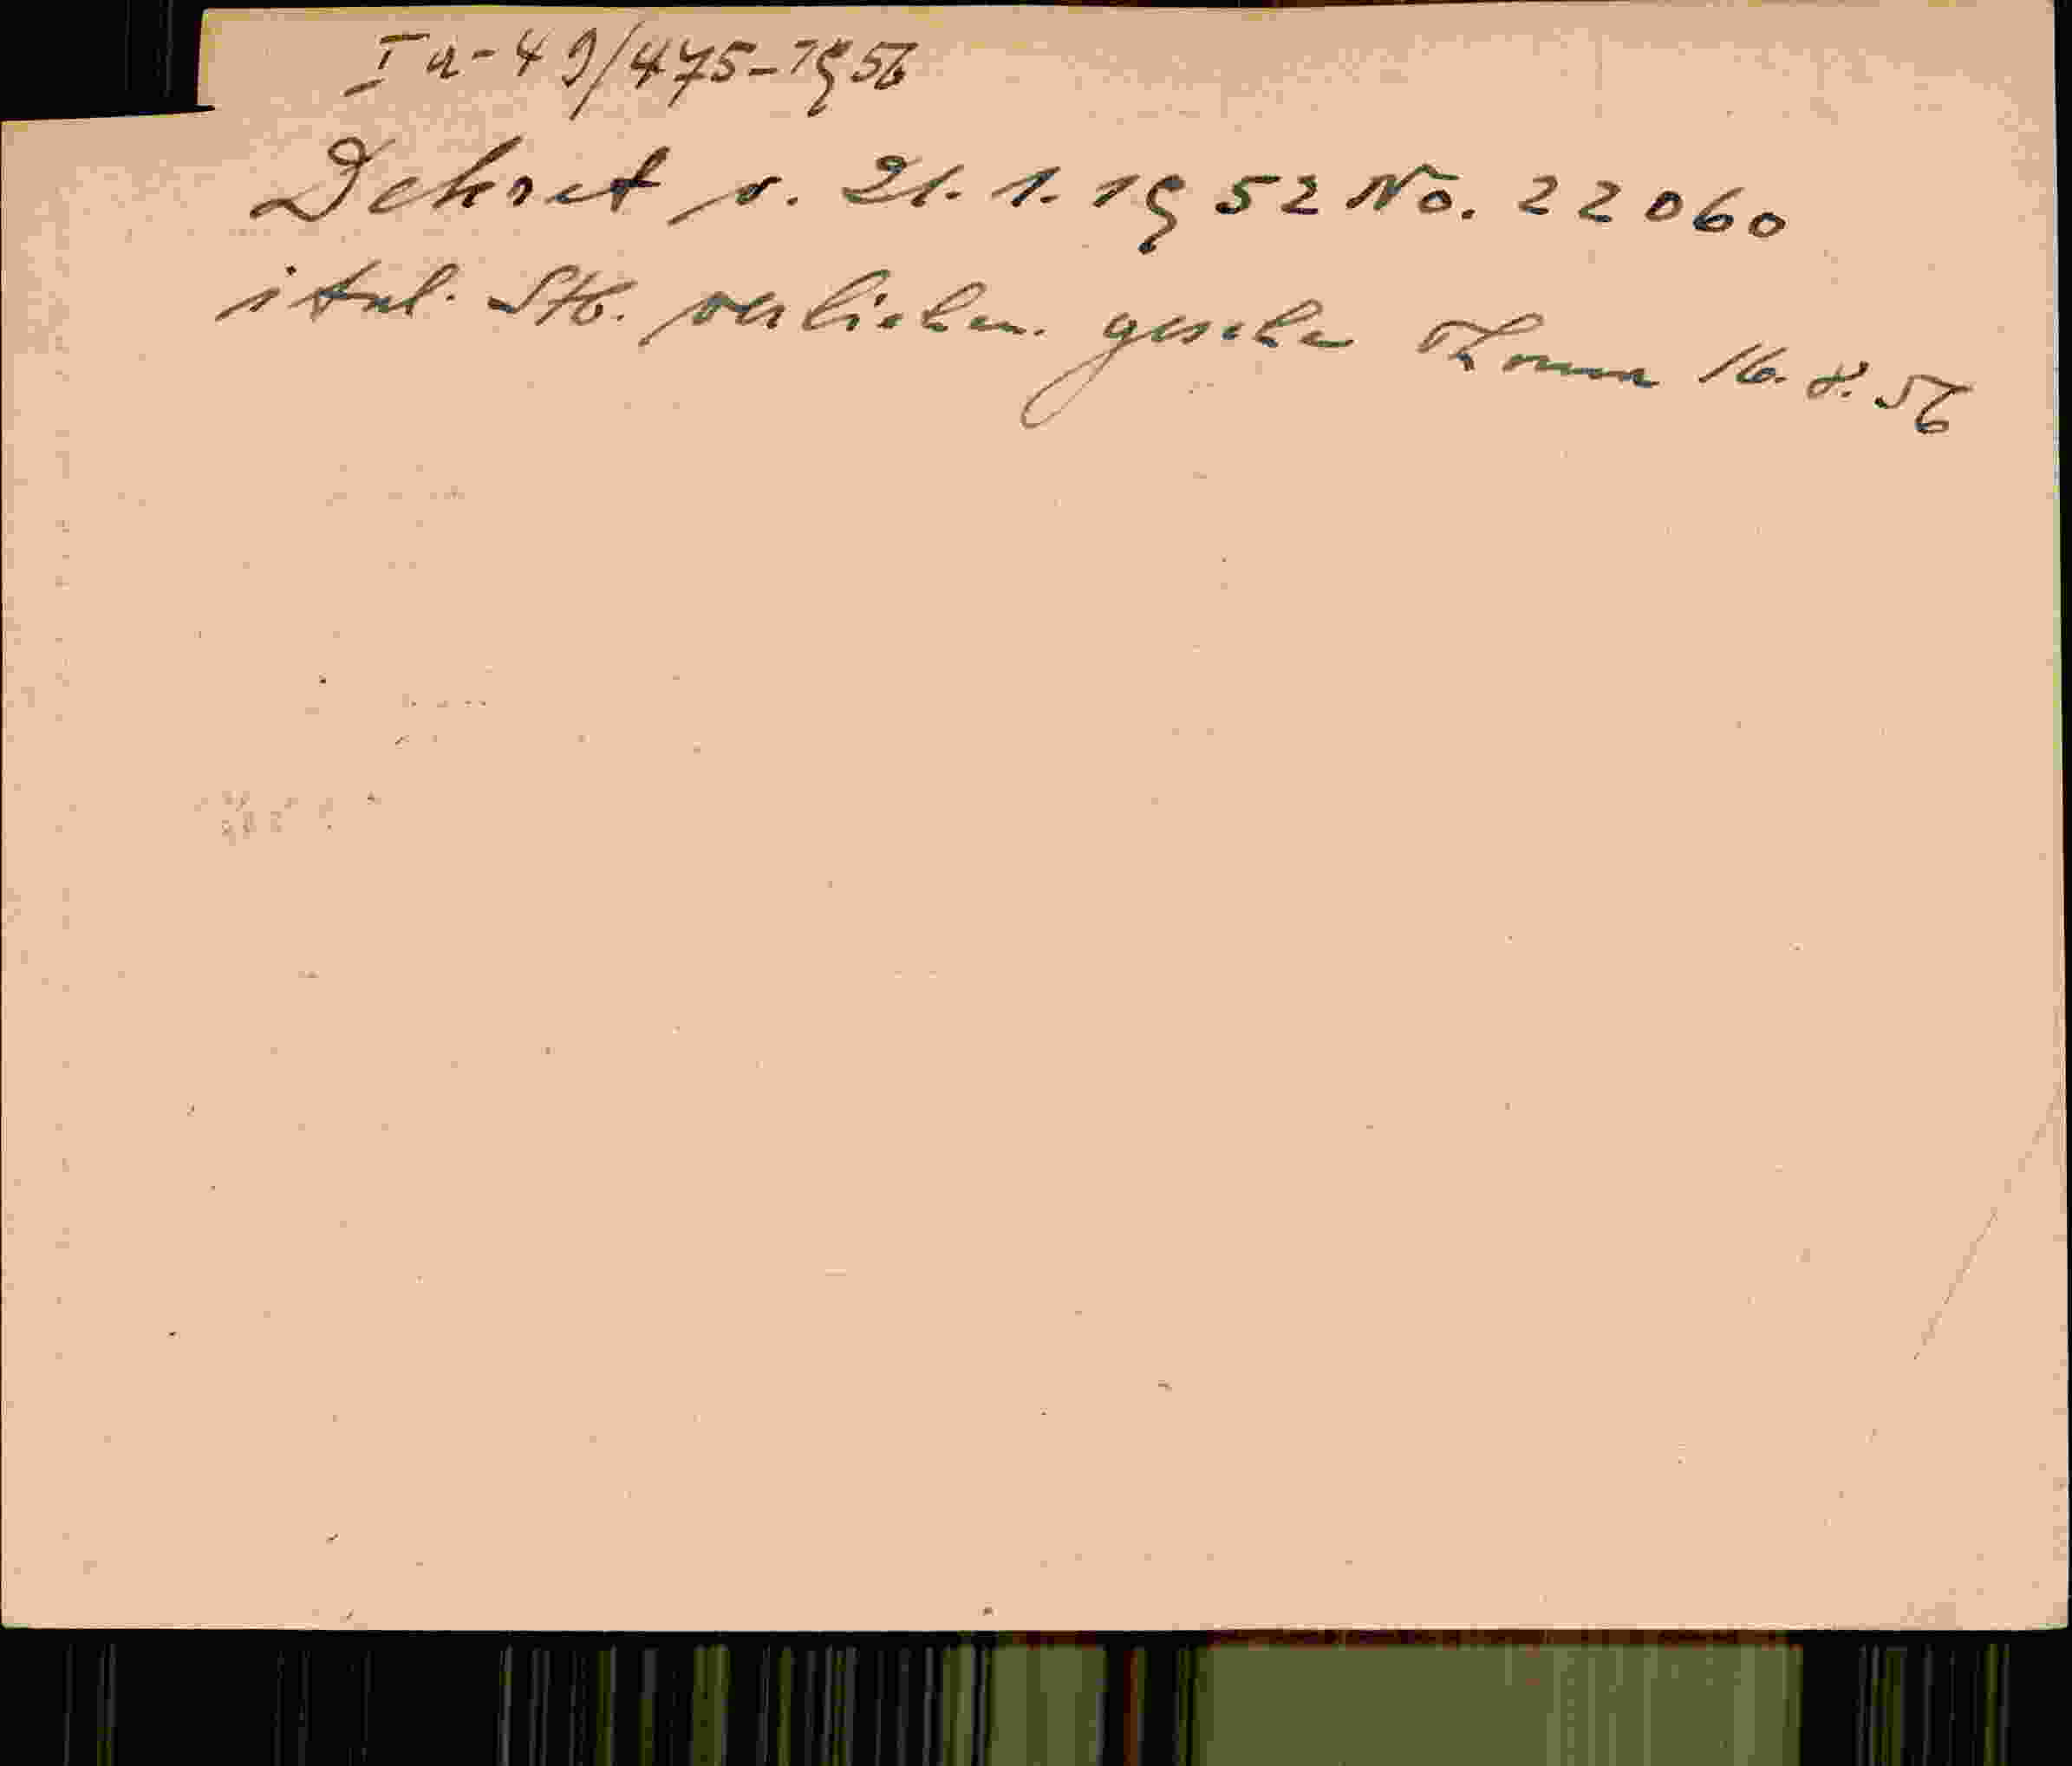 Ia-49/475-1956
Dekret v. 21.1.1952 No. 22060
ital. Stb. verliehen. gesehen Thoma 16.8.56